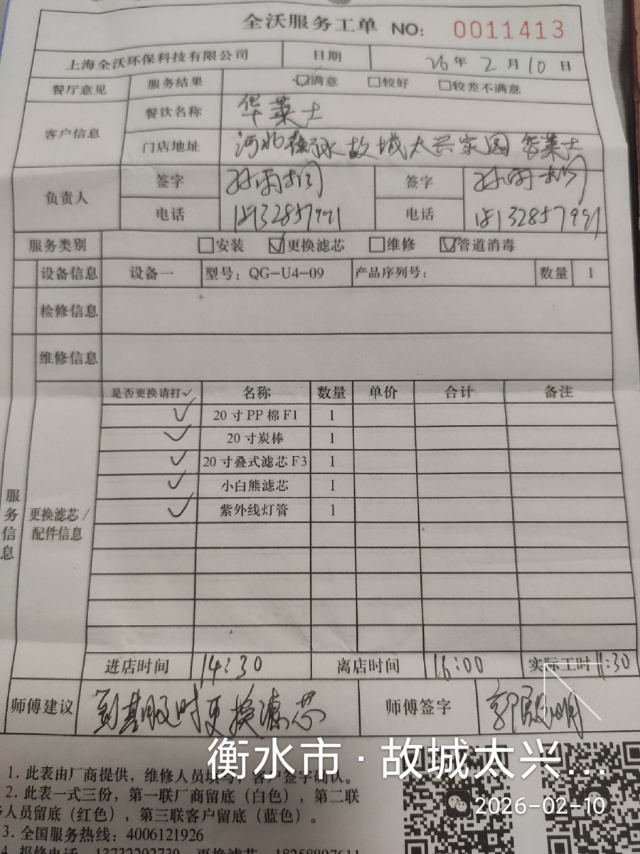 全沃服务工单 NO: 0011413
上海全沃环保科技有限公司 日期 26年2月10日
餐厅意见 服务结果 ☑满意 □较好 □较差不满意
客户信息 餐饮名称 华莱士
门店地址 河北 故城大兴家园 华莱士
负责人 签字 签字
电话 电话
服务类别 □安装 ☑更换滤芯 □维修 ☑管道消毒
设备信息 设备一 型号: QG-U4-09 产品序列号: 数量 1
检修信息
维修信息
服务信息 更换滤芯/配件信息
是否更换请打✓ 名称 数量 单价 合计 备注
✓ 20寸PP棉F1 1
✓ 20寸炭棒 1
✓ 20寸叠式滤芯F3 1
✓ 小白熊滤芯 1
✓ 紫外线灯管 1
进店时间 14:30 离店时间 16:00 实际工时 1:30
师傅建议 到期及时更换滤芯 师傅签字
衡水市·故城大兴...
2026-02-10
1. 此表由厂商提供,维修人员填写,客户签字确认。
2. 此表一式三份,第一联厂商留底(白色),第二联
人员留底(红色),第三联客户留底(蓝色)。
3. 全国服务热线: 4006121926